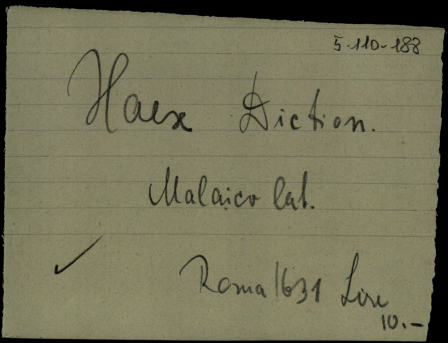 5-110-188
Haex Diction.
Malaico lat.
Roma 1631 Lire
10.-